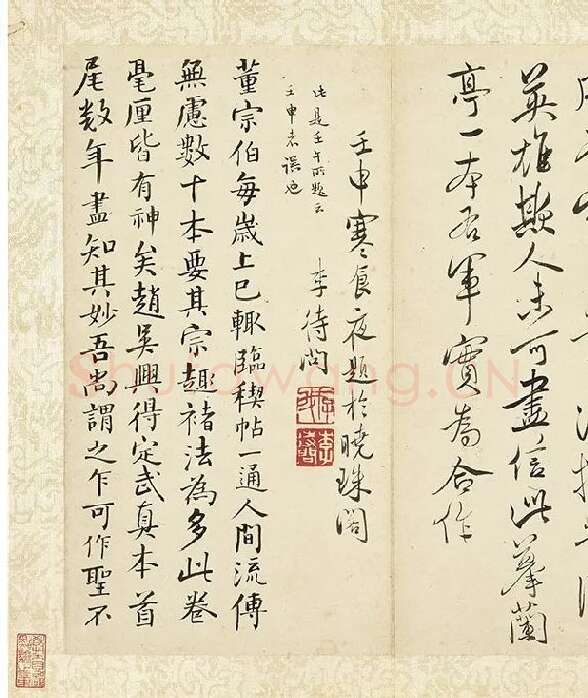 英雄欺人未可盡信此摹蘭
亭一本吾軍實為合作
壬申寒食夜題於曉珠閣
李待問
此是壬午所題云
壬申者誤也
董宗伯每歲上巳輒臨稧帖一通人間流傳
無慮數十本要其宗趣褚法為多此卷
毫厘皆有神矣趙吳興得定武真本首
尾数年盡知其妙吾嵩謂之乍可作聖不
Shufawang.CN